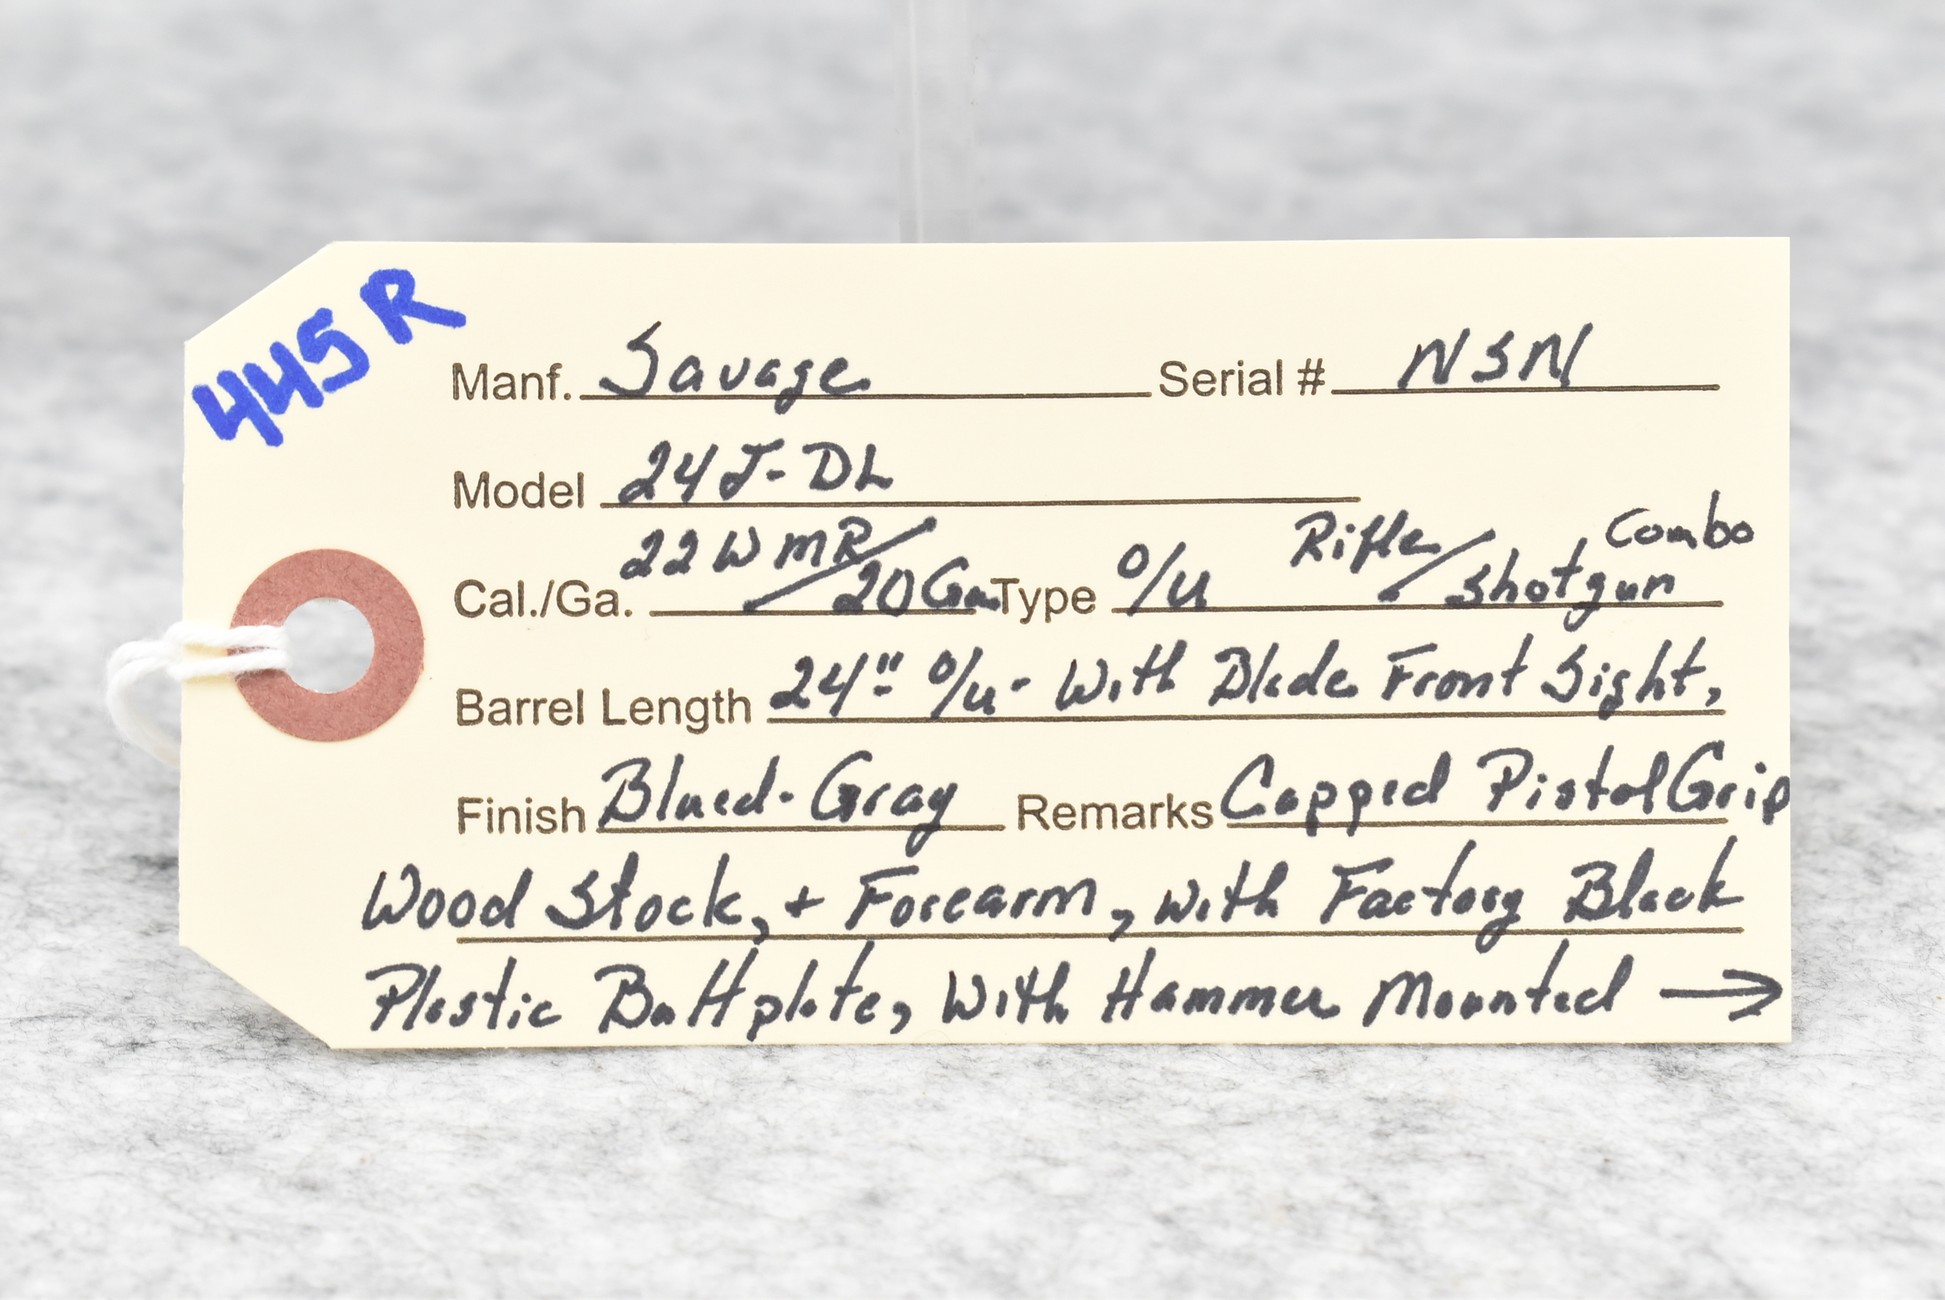 445 R
Manf. Savage Serial # NSN
Model 24J-DL
Cal./Ga. 22 WMR/20Ga Type O/U Rifle/Shotgun Combo
Barrel Length 24" O/U - With Blade Front Sight,
Finish Blued-Gray Remarks Capped Pistol Grip
Wood Stock, + Forearm, with Factory Black
Plastic Buttplate, With Hammer Mounted →